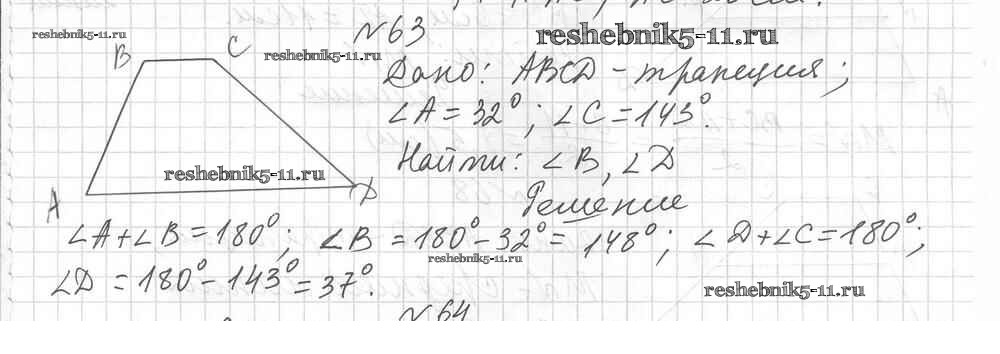 №63
reshebnik5-11.ru
reshebnik5-11.ru
reshebnik5-11.ru
B
C
Дано: ABCD - трапеция;
∠A = 32°; ∠C = 143°.
Найти: ∠B, ∠D
reshebnik5-11.ru
A
D
Решение
∠A + ∠B = 180°; ∠B = 180° - 32° = 148°; ∠D + ∠C = 180°;
reshebnik5-11.ru
∠D = 180° - 143° = 37°.
reshebnik5-11.ru
№64